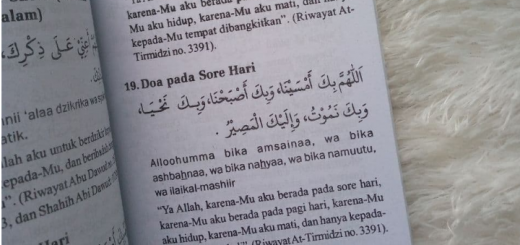 alam)
عَلَى ذِكْرِكَ
nii 'alaa dzikrika wa
atik.
lah aku untuk berdzikir
epada-Mu, dan beribadah
". (Riwayat Abu Dawud
3, dan Shahih Abi Dawud
Hari
karena-Mu aku berada pada
Mu aku hidup, karena-Mu aku mati, dan
kepada-Mu tempat dibangkitkan". (Riwayat At-
Tirmidzi no. 3391).
19. Doa pada Sore Hari
اَللَّهُمَّ بِكَ أَمْسَيْنَا، وَبِكَ أَصْبَحْنَا، وَبِكَ نَحْيَا،
وَبِكَ نَمُوْتُ، وَإِلَيْكَ الْمَصِيْرُ .
Alloohumma bika amsainaa, wa bika
ashbahnaa, wa bika nahyaa, wa bika namuutu,
wa ilaikal-mashiir
"Ya Allah, karena-Mu aku berada pada sore hari,
karena-Mu aku berada pada pagi hari, karena-Mu
aku hidup, karena-Mu aku mati, dan hanya kepada-
(Riwayat At-Tirmidzi no. 3391).